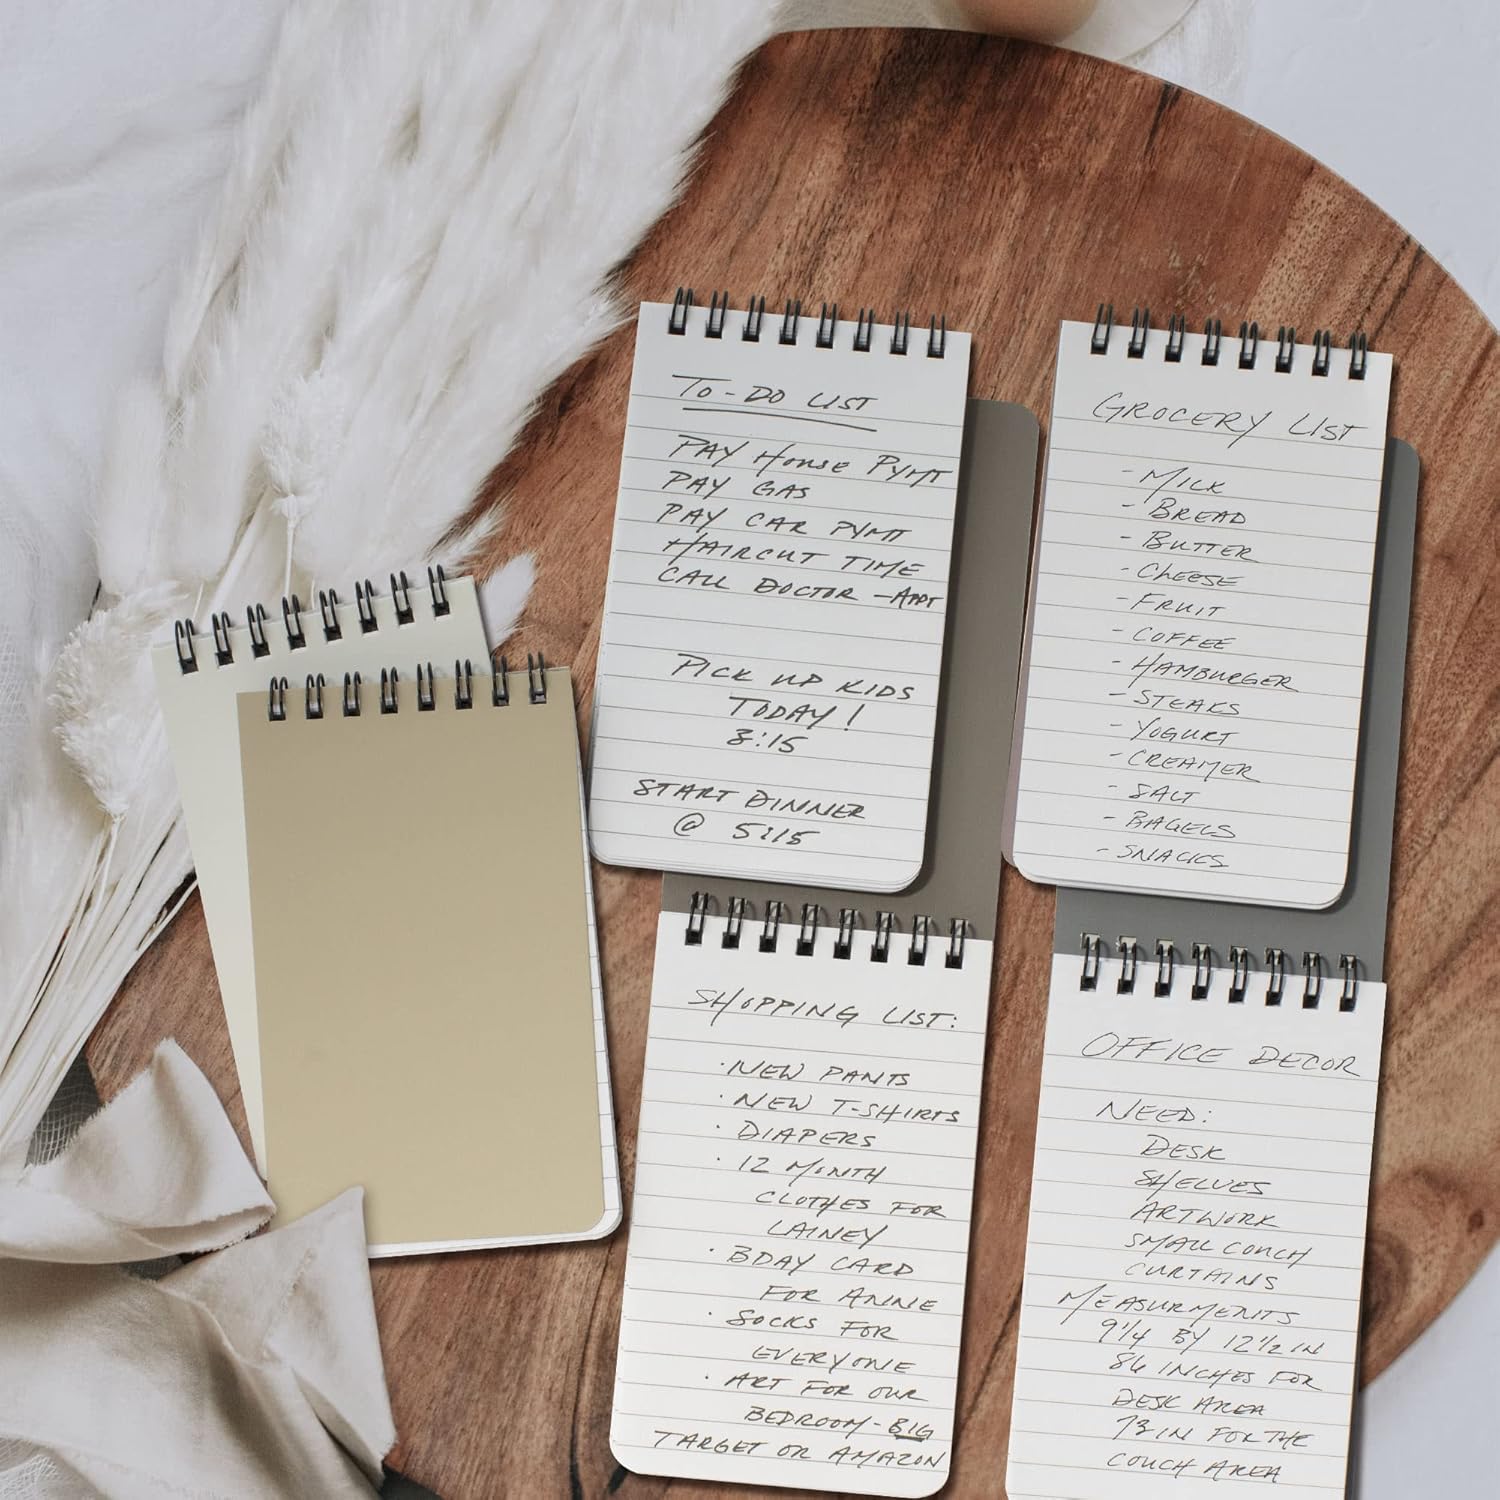 TO-DO LIST
PAY HOUSE PYMT
PAY GAS
PAY CAR PYMT
HAIRCUT TIME
CALL DOCTOR -APPT
PICK UP KIDS
TODAY!
3:15
START DINNER
@ 5:15
GROCERY LIST
- MILK
- BREAD
- BUTTER
- CHEESE
- FRUIT
- COFFEE
- HAMBURGER
- STEAKS
- YOGURT
- CREAMER
- SALT
- BAGELS
- SNACKS
SHOPPING LIST:
· NEW PANTS
· NEW T-SHIRTS
· DIAPERS
· 12 MONTH
CLOTHES FOR
LAINEY
· BDAY CARD
FOR ANNIE
· SOCKS FOR
EVERYONE
· ART FOR OUR
BEDROOM - BIG
TARGET OR AMAZON
OFFICE DECOR
NEED:
DESK
SHELVES
ARTWORK
SMALL COUCH
CURTAINS
MEASURMENTS
9 1/4 BY 12 1/2 IN
86 INCHES FOR
DESK AREA
73 IN FOR THE
COUCH AREA